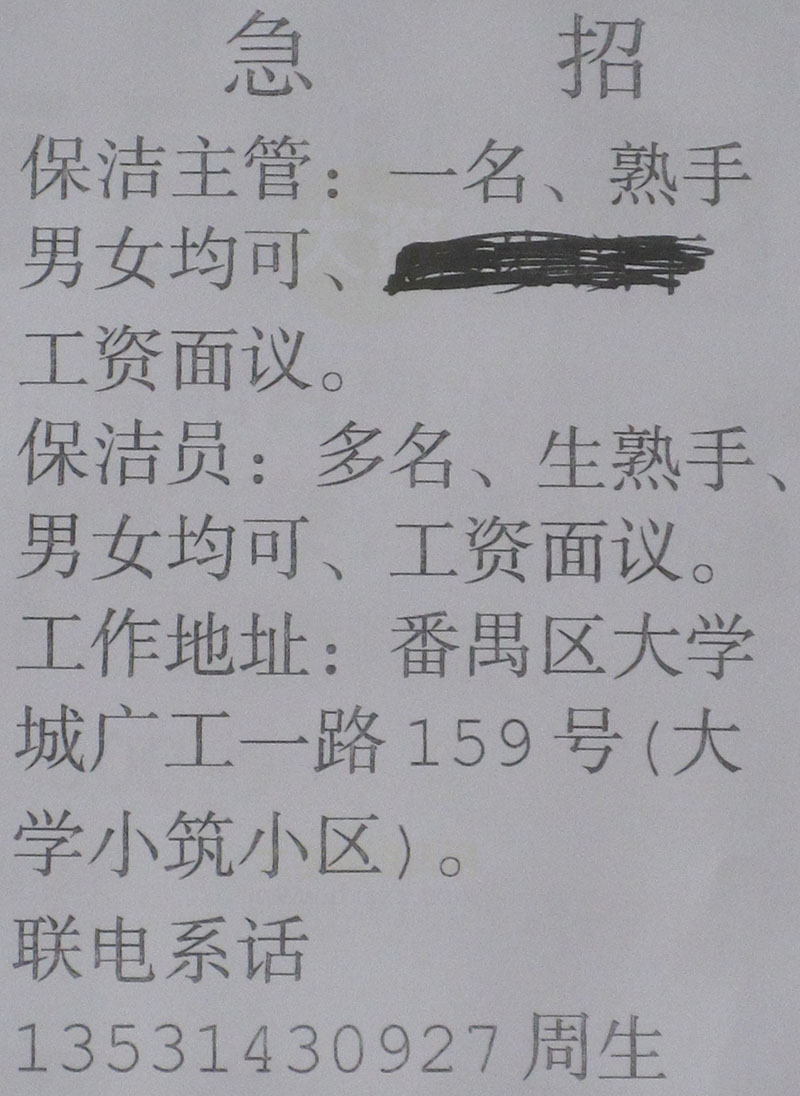 急 招
保洁主管：一名、熟手
男女均可、
工资面议。
保洁员：多名、生熟手、
男女均可、工资面议。
工作地址：番禺区大学
城广工一路159号(大
学小筑小区)。
联电系话
13531430927周生